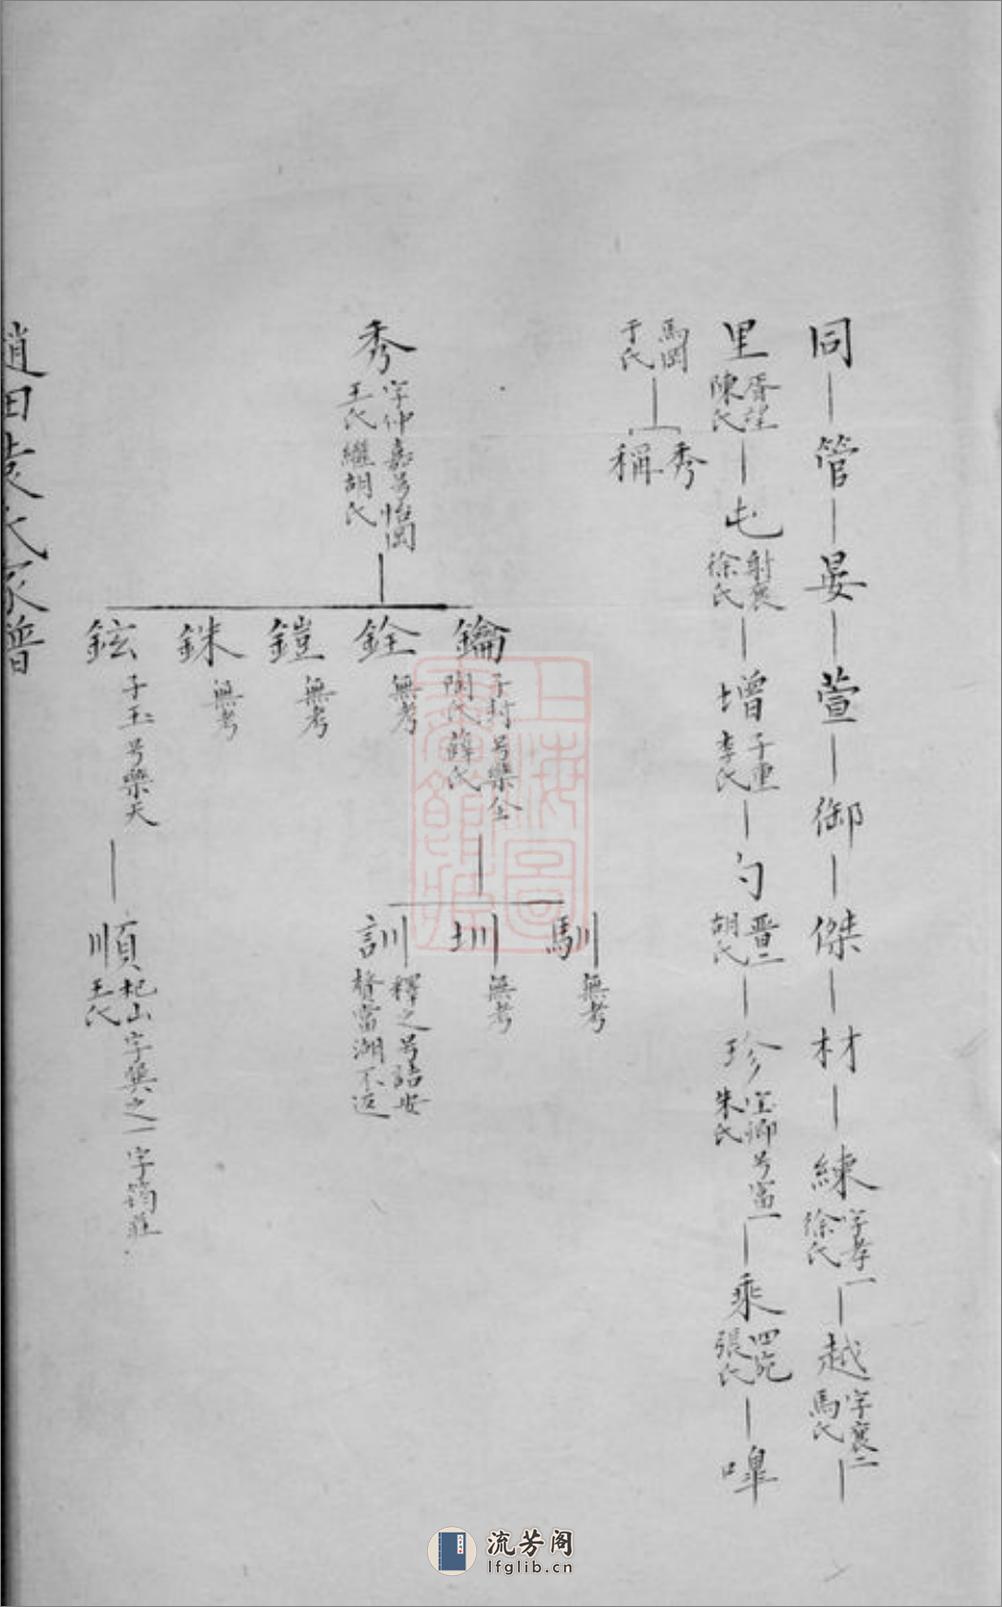 同
管
晏
萱
御
傑
材
練
字孝一
徐氏
越
字襄二
馬氏
里
屏望
陳氏
屯
射襄
徐氏
增
子重
李氏
勻
晋二
胡氏
珍
宝卿号富一
朱氏
乘
張氏
嘷
馬岡
于氏
秀
稱
秀
字仲嘉号怡園
王氏繼胡氏
鑰
子封号樂全
陶氏薛氏
銓
無考
鎧
無考
銖
無考
鉉
子玉号樂天
馴
無考
圳
無考
訓
釋之号結安
贅當湖不返
順
杞山字巽之一字筠莊
王氏
趙田袁氏家譜
上海圖書館藏
流芳阁
lfglib.cn